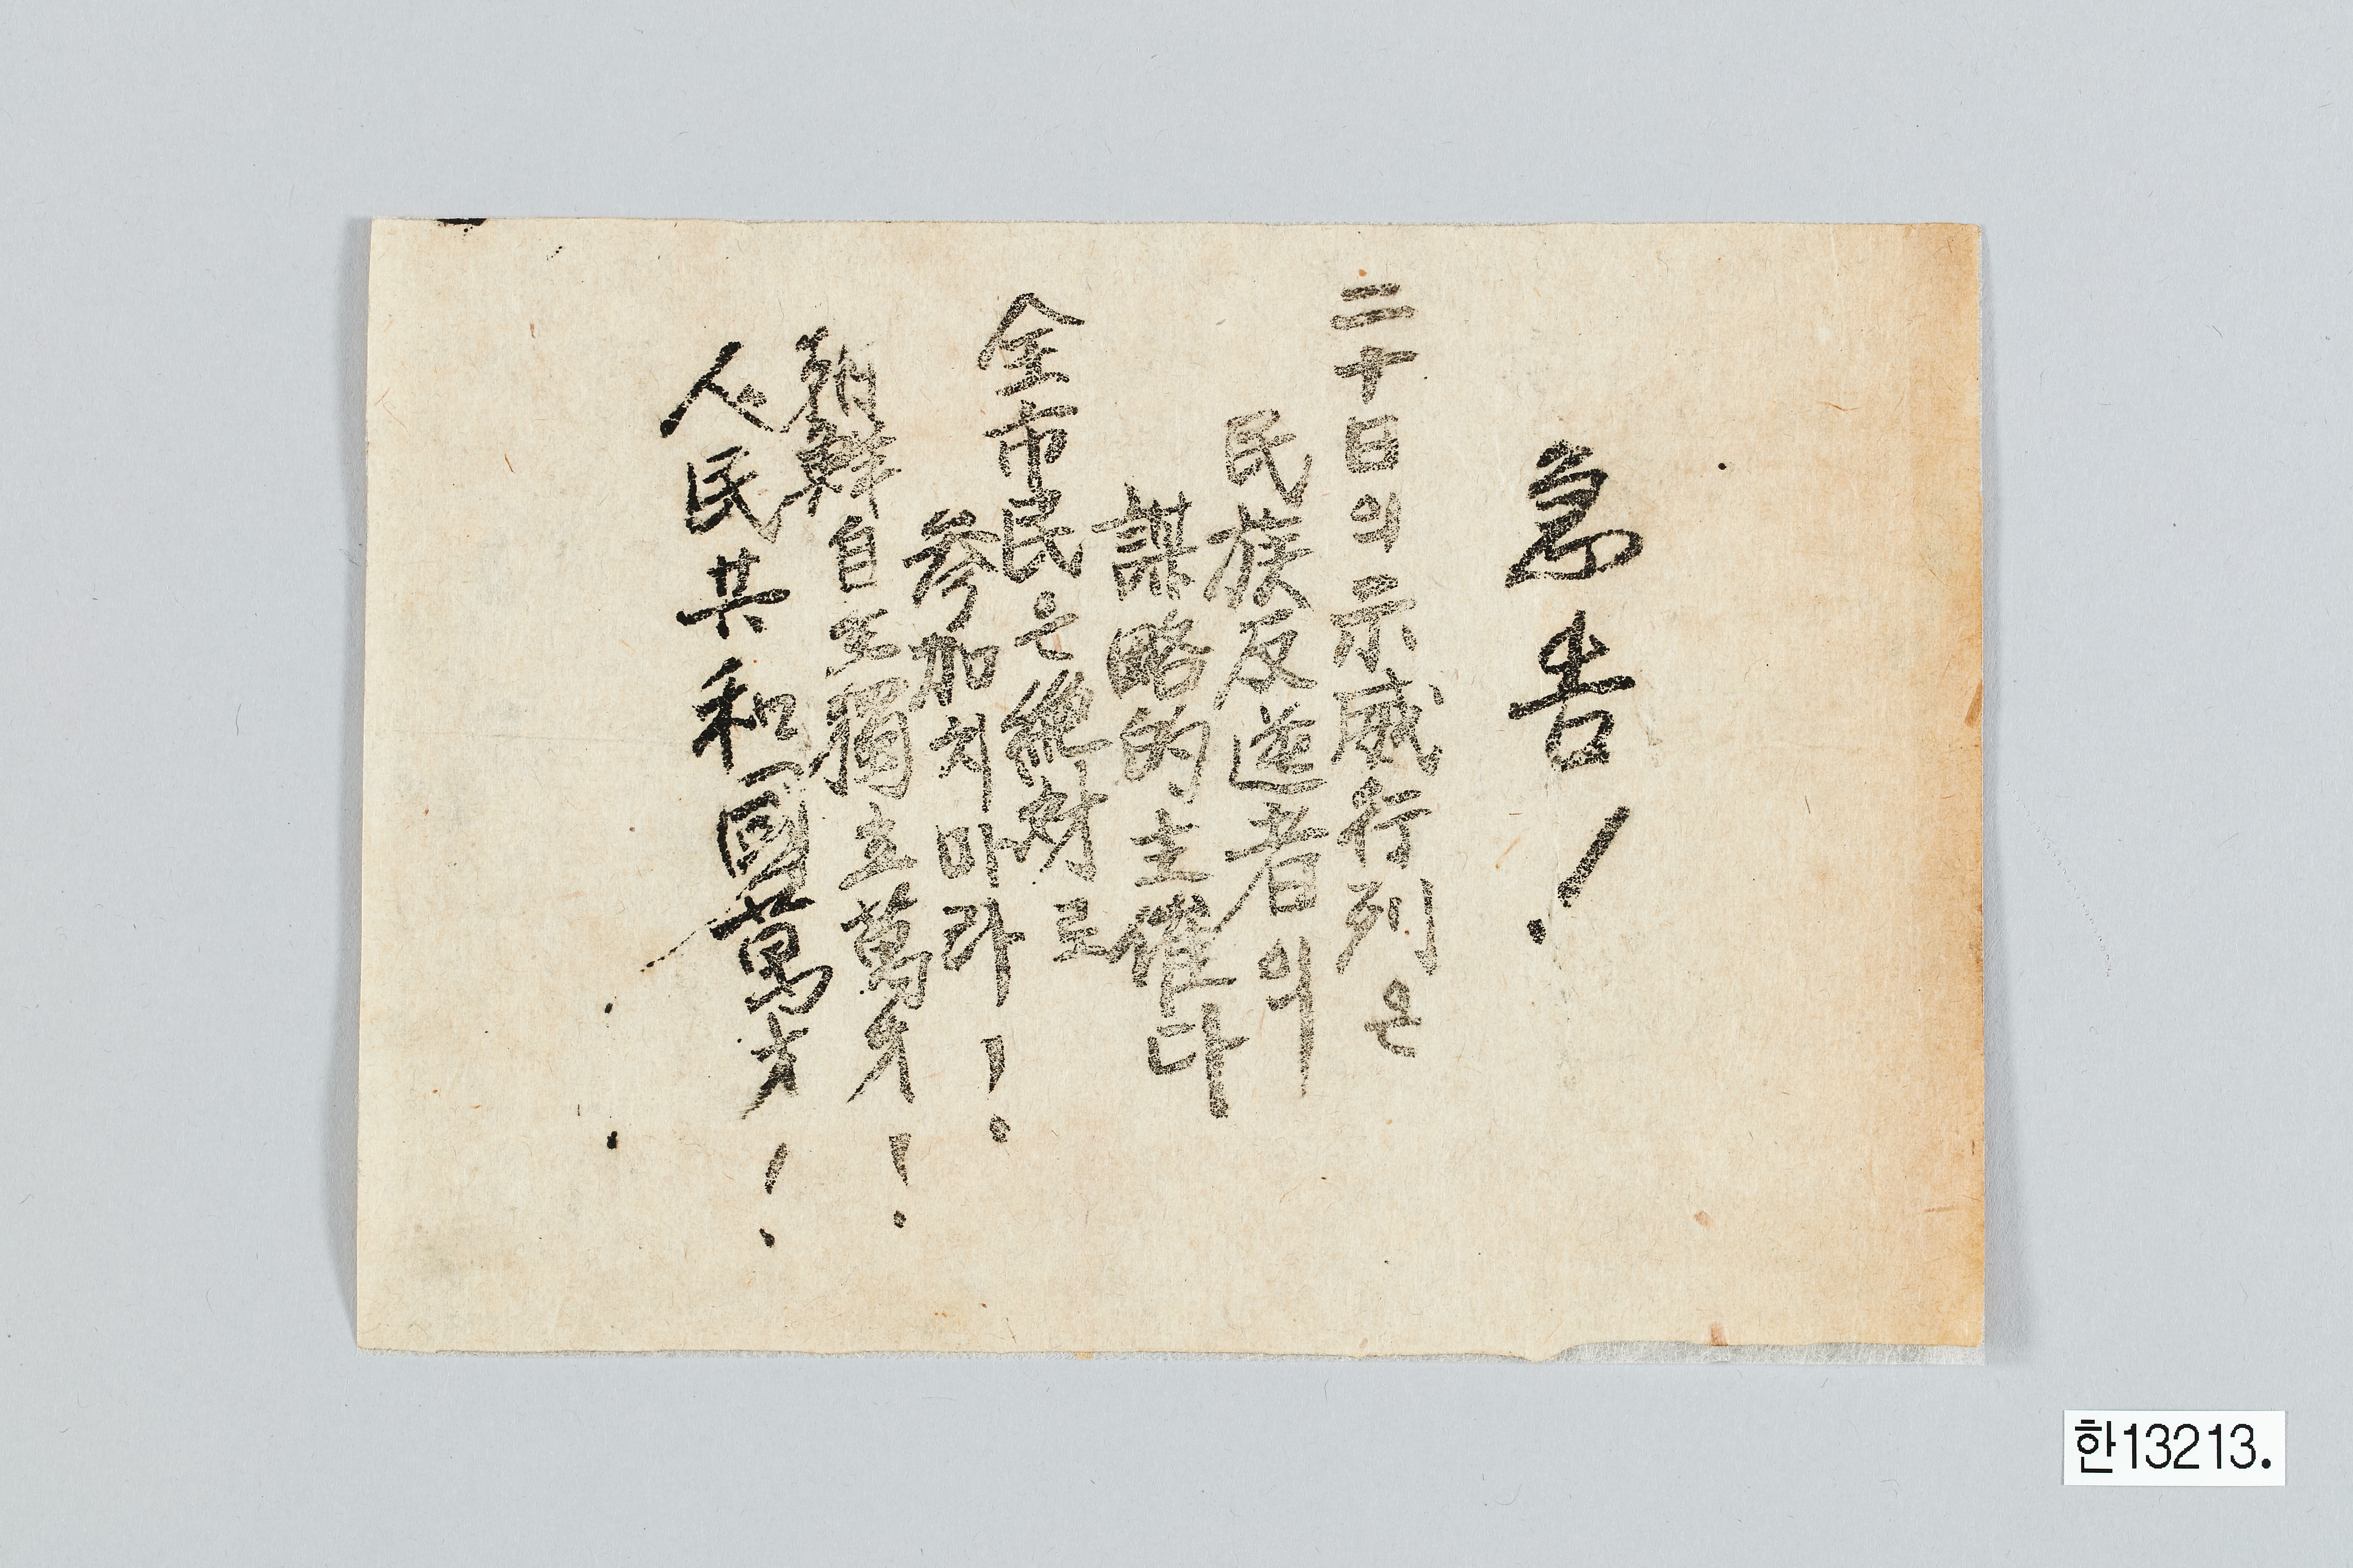 急告!
二十日의示威行列은
民族反逆者의
謀略的主催다
全市民은絶対로
參加치마라!
朝鮮自主獨立萬才!
人民共和國萬才!
한13213.